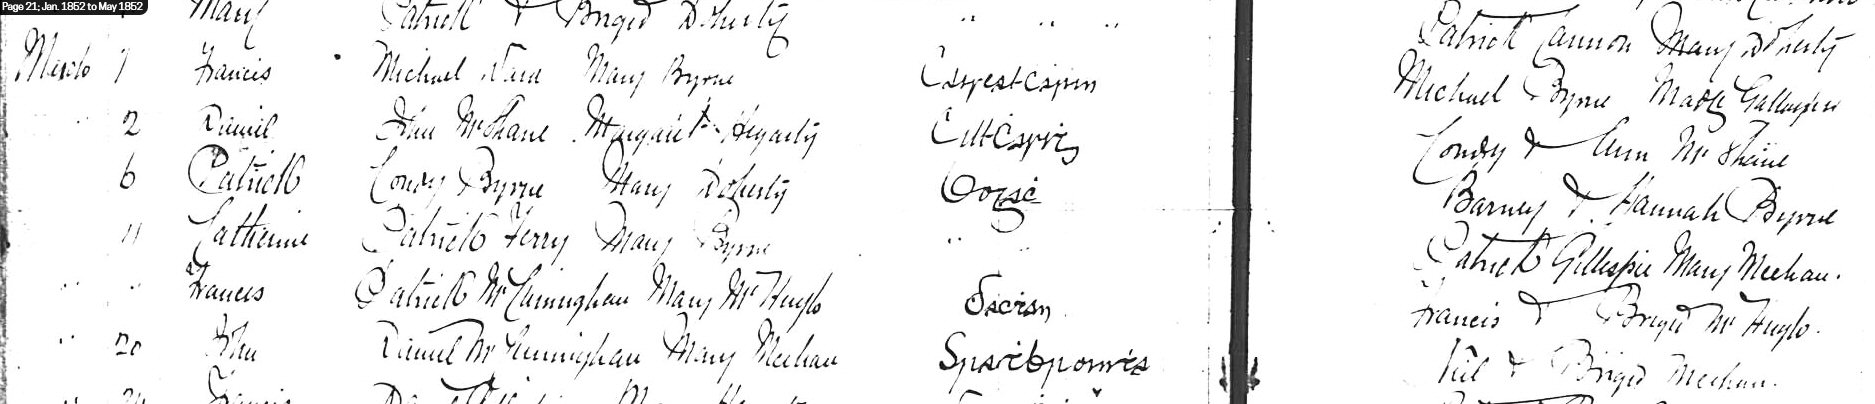 Page 21; Jan. 1852 to May 1852
Mary Patrick & Briged Doherty " " "
Patrick Cannon Mary Doherty
March 1 Francis Michael Ward Mary Byrne
Michael Byrne Madge Gallagher
" 2 Daniel John McShane Margaret Hegarty
Condy & Ann McShane
6 Patrick Condy Byrne Mary Doherty
Barney & Hannah Byrne
11 Catherine Patrick Ferry Mary Byrne " "
Patrick Gillespie Mary Meehan.
" " Frances Patrick McCunningham Mary McHugh
Francis & Briged McHugh.
" 20 John Daniel McCunningham Mary Meehan
Neil & Briged Meehan.
" Francis